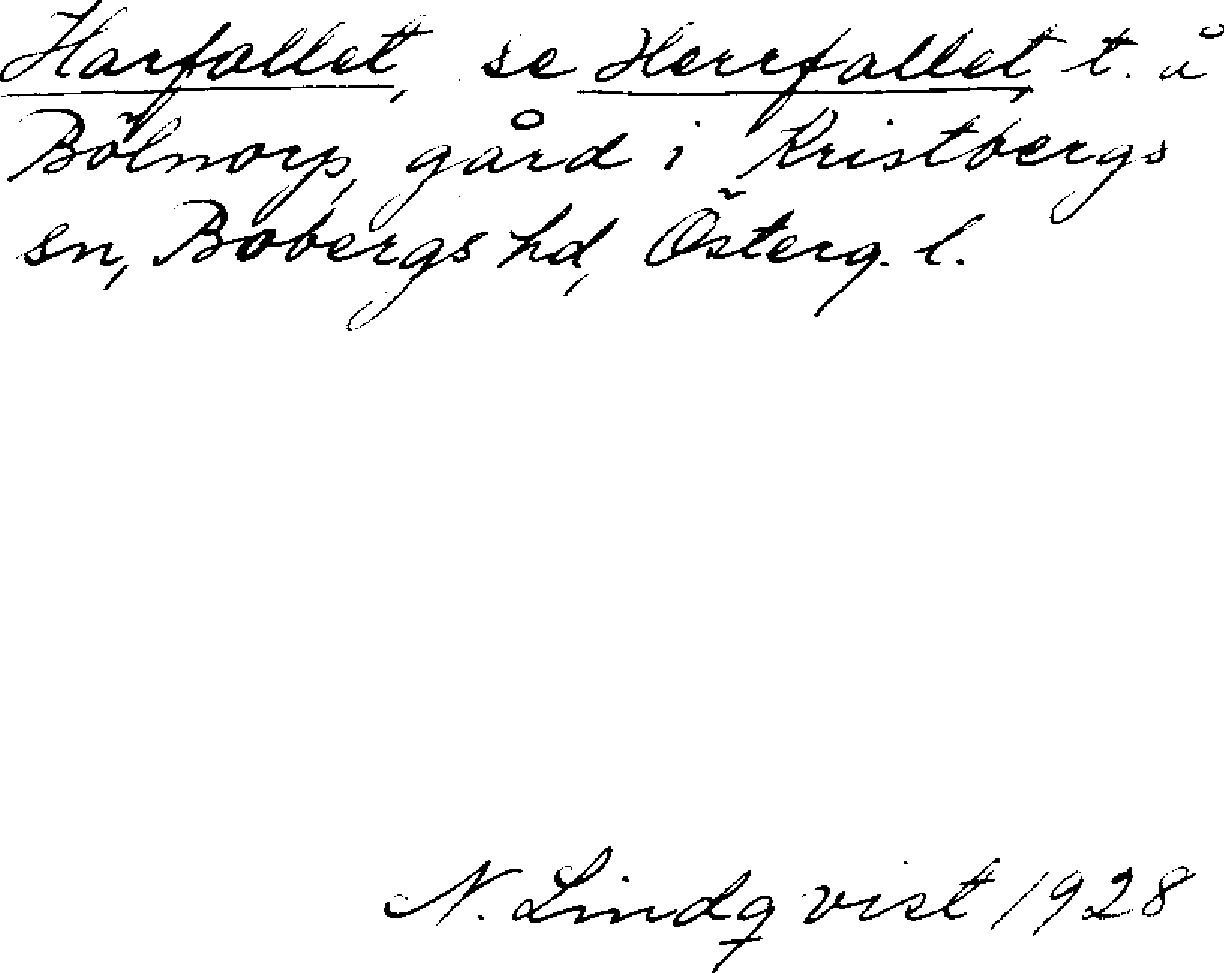 Harfallet, se Herrfallet, t. å
Bölnorp, gård i Kristbergs
sn, Bobergs hd, Österg. l.
N. Lindqvist 1928